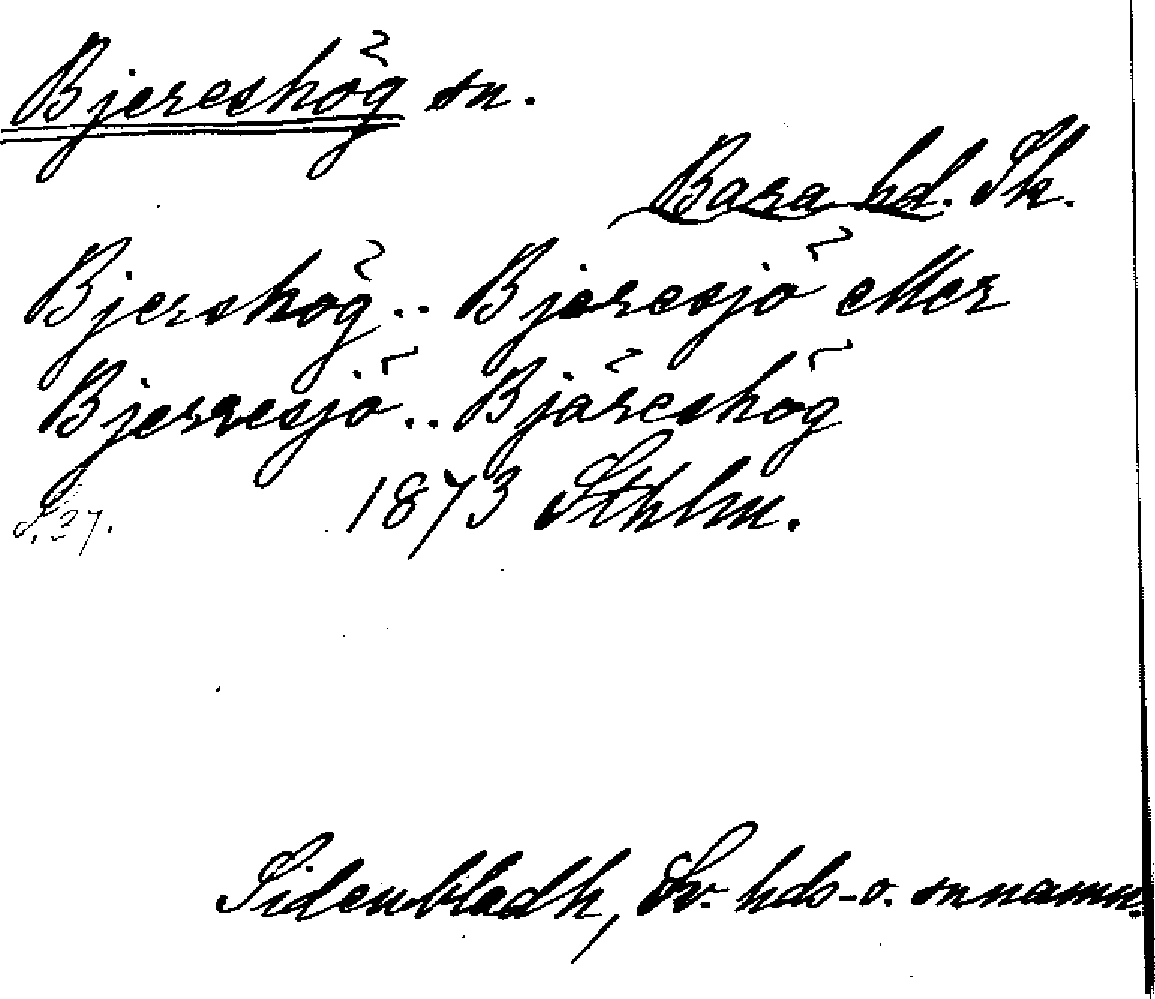 Bjereshög sn.
Bara hd. Sk.
Bjershög.. Bjeresjö eller
Bjerresjö.. Bjäreshög
S. 37. 1873 Sthlm.
Sidenbladh, Sv. hds- o. snnamn.